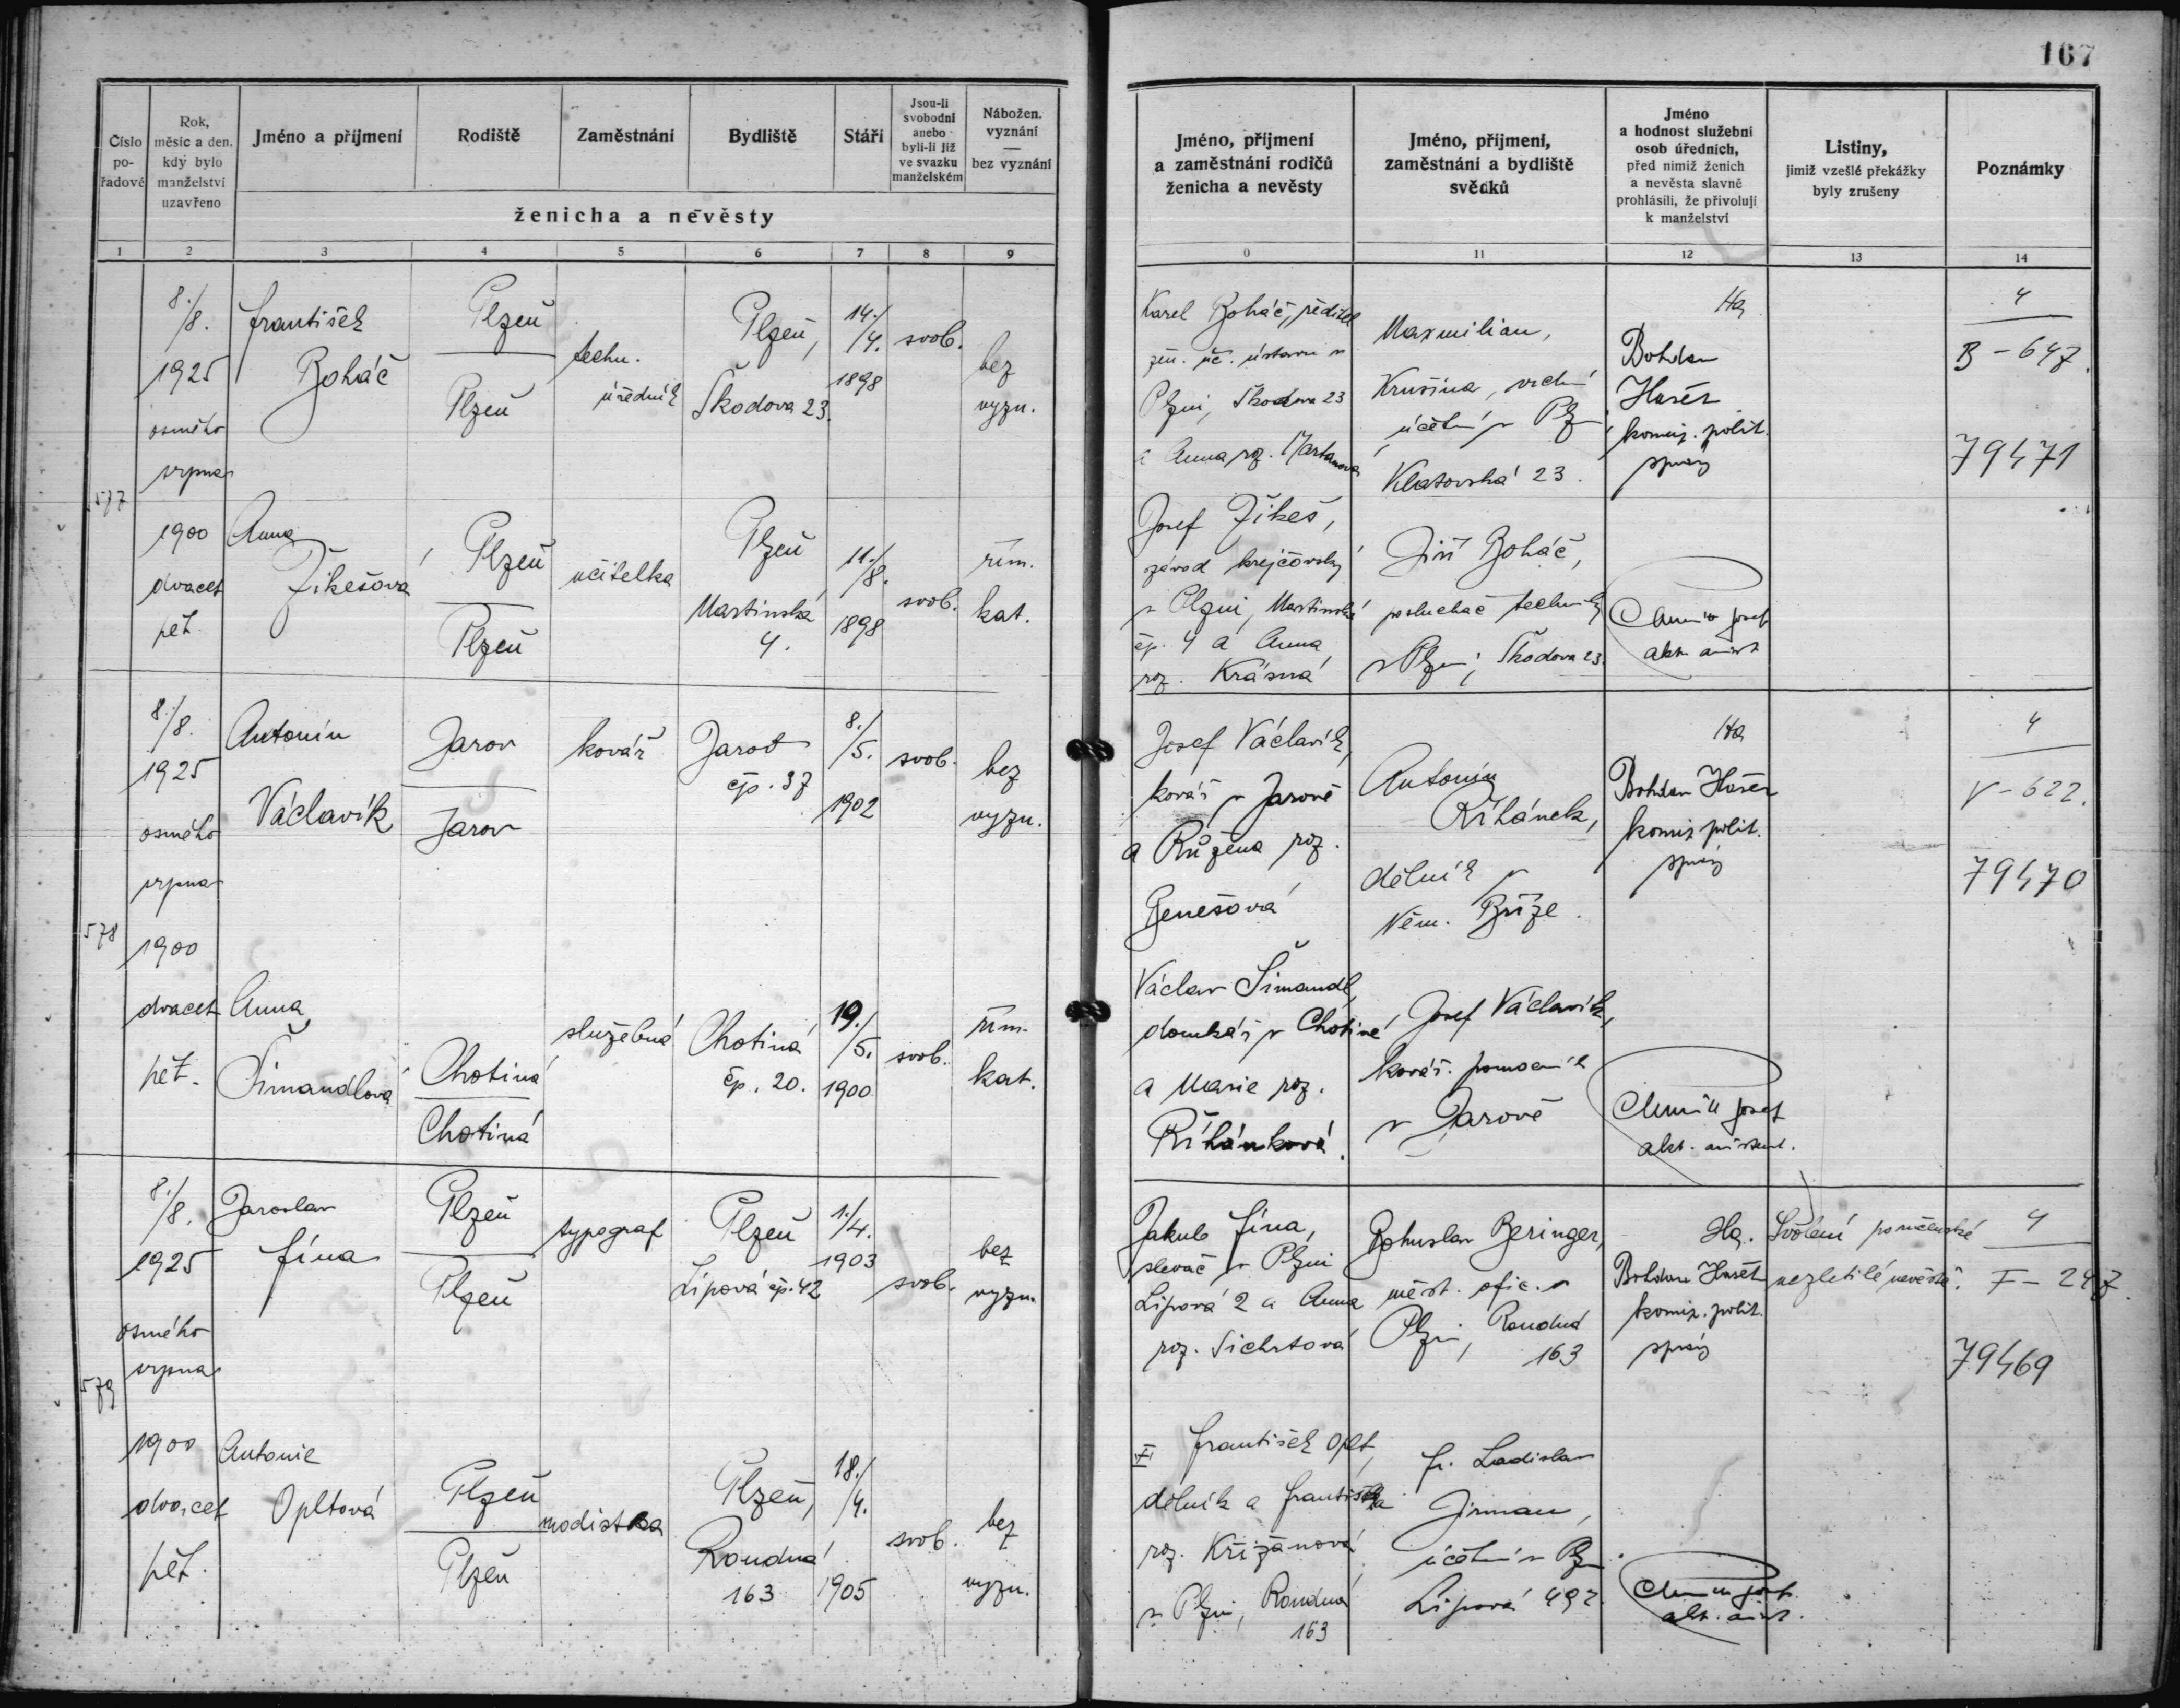 167
Číslo pořadové
Rok, měsíc a den, kdy bylo manželství uzavřeno
Jméno a příjmení
Rodiště
Zaměstnání
Bydliště
Stáří
Jsou-li svobodni anebo byli-li již ve svazku manželském
Nábožen. vyznání — bez vyznání
ženicha a nevěsty
Jméno, příjmení a zaměstnání rodičů ženicha a nevěsty
Jméno, příjmení, zaměstnání a bydliště svědků
Jméno a hodnost služební osob úředních, před nimiž ženich a nevěsta slavně prohlásili, že přivolují k manželství
Listiny, jimiž vzešlé překážky byly zrušeny
Poznámky
1 2 3 4 5 6 7 8 9 0 11 12 13 14
577
8./8.
1925
osmého
srpna
1900
dvacet
pět
František
Boháč
Plzeň
Plzeň
techn.
úředník
Plzeň,
Škodova 23.
14./4.
1898
svob.
bez
vyzn.
Karel Boháč, ředitel
Plzni, Škodova 23
a Anna roz.
Maxmilian,
Krušina, vrchní
účetní v
Klatovská 23.
Ha
Bohdan
komis. polit.
správy
4
B - 647.
79471
Anna
Žikešová
Plzeň
Plzeň
učitelka
Plzeň
Martinská
4.
11./8.
1898
svob.
řím.
kat.
Josef Žikeš,
závod krejčovský
v Plzni, Martinská
čp. 4 a Anna
roz. Krásná
Jiří Boháč,
posluchač techniky
v Plzni, Škodova 23.
Josef
akt. assist
578
8./8.
1925
osmého
srpna
1900
dvacet
pět.
Antonín
Václavík
Jarov
Jarov
kovář
Jarov
čp. 37
8./5.
1902
svob.
bez
vyzn.
Josef Václavík,
kovář v Jarově
a Růžena roz.
Benešová
Antonín
Říhánek,
dělník v
Něm. Bříze.
Ha
Bohdan
komis. polit.
správy
4
V - 622.
79470
Anna
Šimandlová
Chotiná
Chotiná
služebná
Chotiná
čp. 20.
19./5.
1900
svob.
řím.
kat.
Václav Šimandl,
domkář v Chotiné
a Marie roz.
Říhánková.
Josef Václavík,
kovář. pomocník
v Jarově
Josef
akt. assistent.
579
8./8.
1925
osmého
srpna
1900
dvacet
pět.
Jaroslav
Fína
Plzeň
Plzeň
typograf
Plzeň
Lípová čp. 42
1./4.
1903
svob.
bez
vyzn.
Jakub Fína,
slevač v Plzni
Lípová 2 a Anna
roz. Sichrtová
Bohuslav Beringer,
měst. ofic. v
Plzni, Roudná
163
Ha.
Bohdan
komis. polit.
správy
Svolení poručenské
nezletilé nevěstě.
4
F - 247.
79469
Antonie
Opltová
Plzeň
Plzeň
modistka
Plzeň,
Roudná
163
18./4.
1905
svob.
bez
vyzn.
František Oplt,
dělník a Františka
roz. Křížanová
v Plzni, Roudná
163
Fr. Ladislav
Jirman,
účetní v
Lípová 492.
akt. assist.